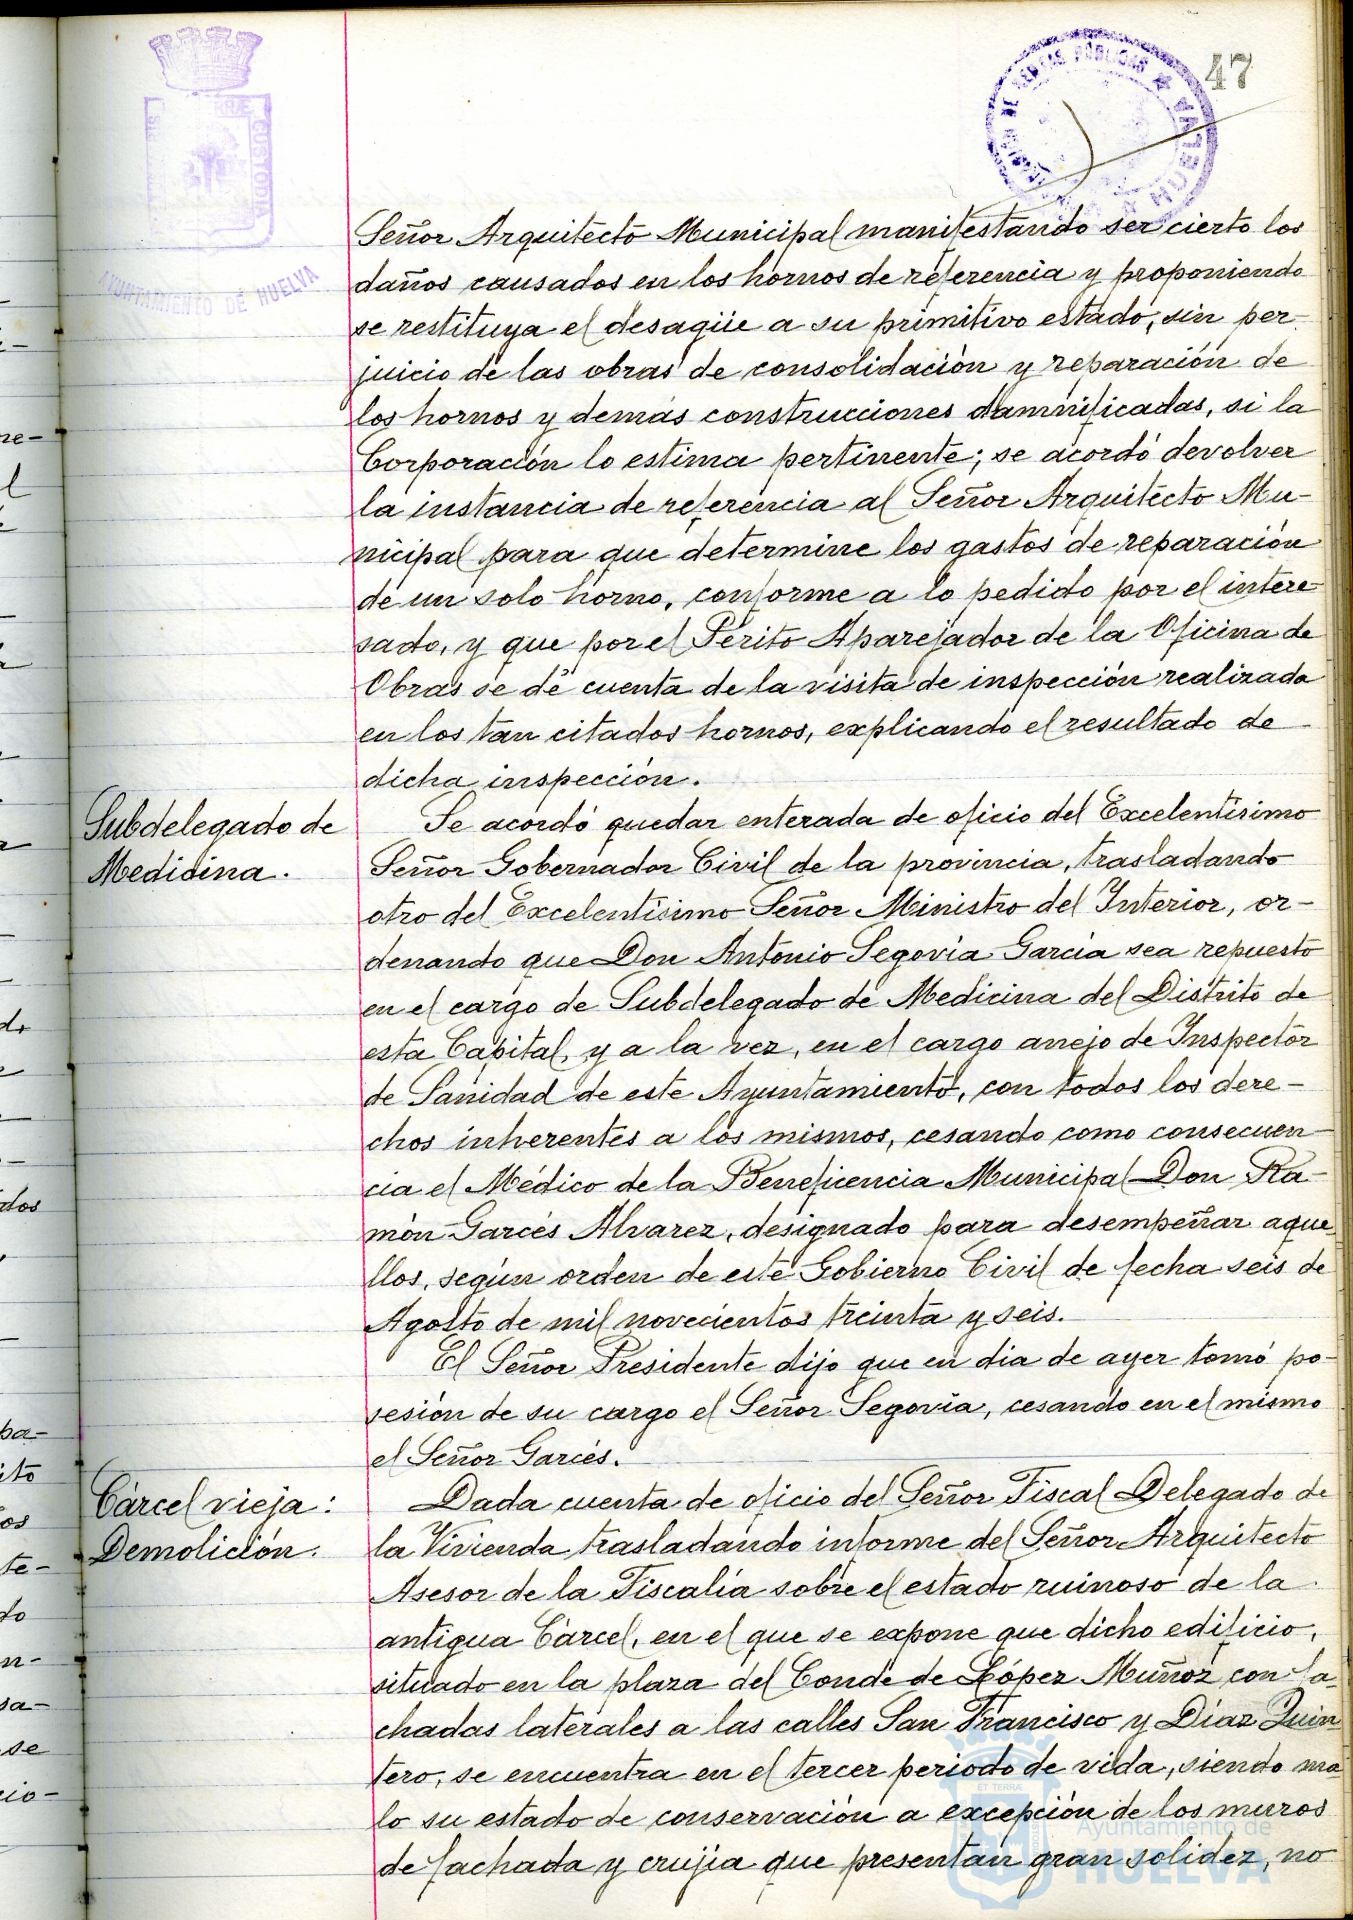 47
AYUNTAMIENTO DE HUELVA
CUSTODIA
HUELVA
Señor Arquitecto Municipal manifestando ser cierto los
daños causados en los hornos de referencia y proponiendo
se restituya el desagüe a su primitivo estado, sin per-
juicio de las obras de consolidación y reparación de
los hornos y demás construcciones damnificadas, si la
Corporación lo estima pertinente; se acordó devolver
la instancia de referencia al Señor Arquitecto Mu-
nicipal para que determine los gastos de reparación
de un solo horno, conforme a lo pedido por el intere-
sado, y que por el Perito Aparejador de la Oficina de
Obras se dé cuenta de la visita de inspección realizada
en los tan citados hornos, explicando el resultado de
dicha inspección.
Subdelegado de
Medicina.
Se acordó quedar enterada de oficio del Excelentísimo
Señor Gobernador Civil de la provincia, trasladando
otro del Excelentísimo Señor Ministro del Interior, or-
denando que Don Antonio Segovia García sea repuesto
en el cargo de Subdelegado de Medicina del Distrito de
esta Capital, y a la vez, en el cargo anejo de Inspector
de Sanidad de este Ayuntamiento, con todos los dere-
chos inherentes a los mismos, cesando como consecuen-
cia el Médico de la Beneficencia Municipal Don Ra-
món Garcés Alvarez, designado para desempeñar aque-
llos, según orden de este Gobierno Civil de fecha seis de
Agosto de mil novecientos treinta y seis.
El Señor Presidente dijo que en dia de ayer tomó po-
sesión de su cargo el Señor Segovia, cesando en el mismo
el Señor Garcés.
Cárcel vieja:
Demolición.
Dada cuenta de oficio del Señor Fiscal Delegado de
la Vivienda trasladando informe del Señor Arquitecto
Asesor de la Fiscalía sobre el estado ruinoso de la
antigua Cárcel, en el que se expone que dicho edificio,
situado en la plaza del Conde de López Muñoz con fa-
chadas laterales a las calles San Francisco y Díaz Quin
tero, se encuentra en el tercer periodo de vida, siendo ma-
lo su estado de conservación a excepción de los muros
de fachada y crujia que presentan gran solidez, no
Ayuntamiento de
HUELVA